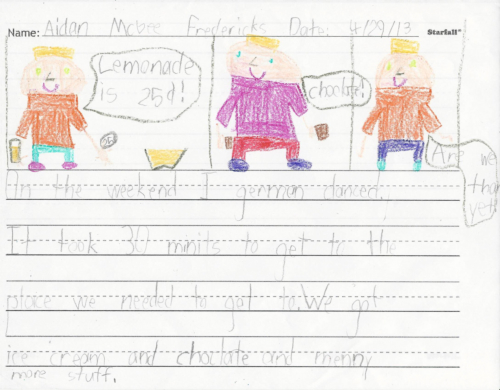 Name: Aidan Mcbee Fredericks Date: 4/29/13 Starfall
Lemonade
is 25¢!
choclate!
Are we
thar
yet
In the weekend I german danced.
It took 30 minits to get to the
place we needed to got to. We got
ice cream and choclate and menny
more stuff.